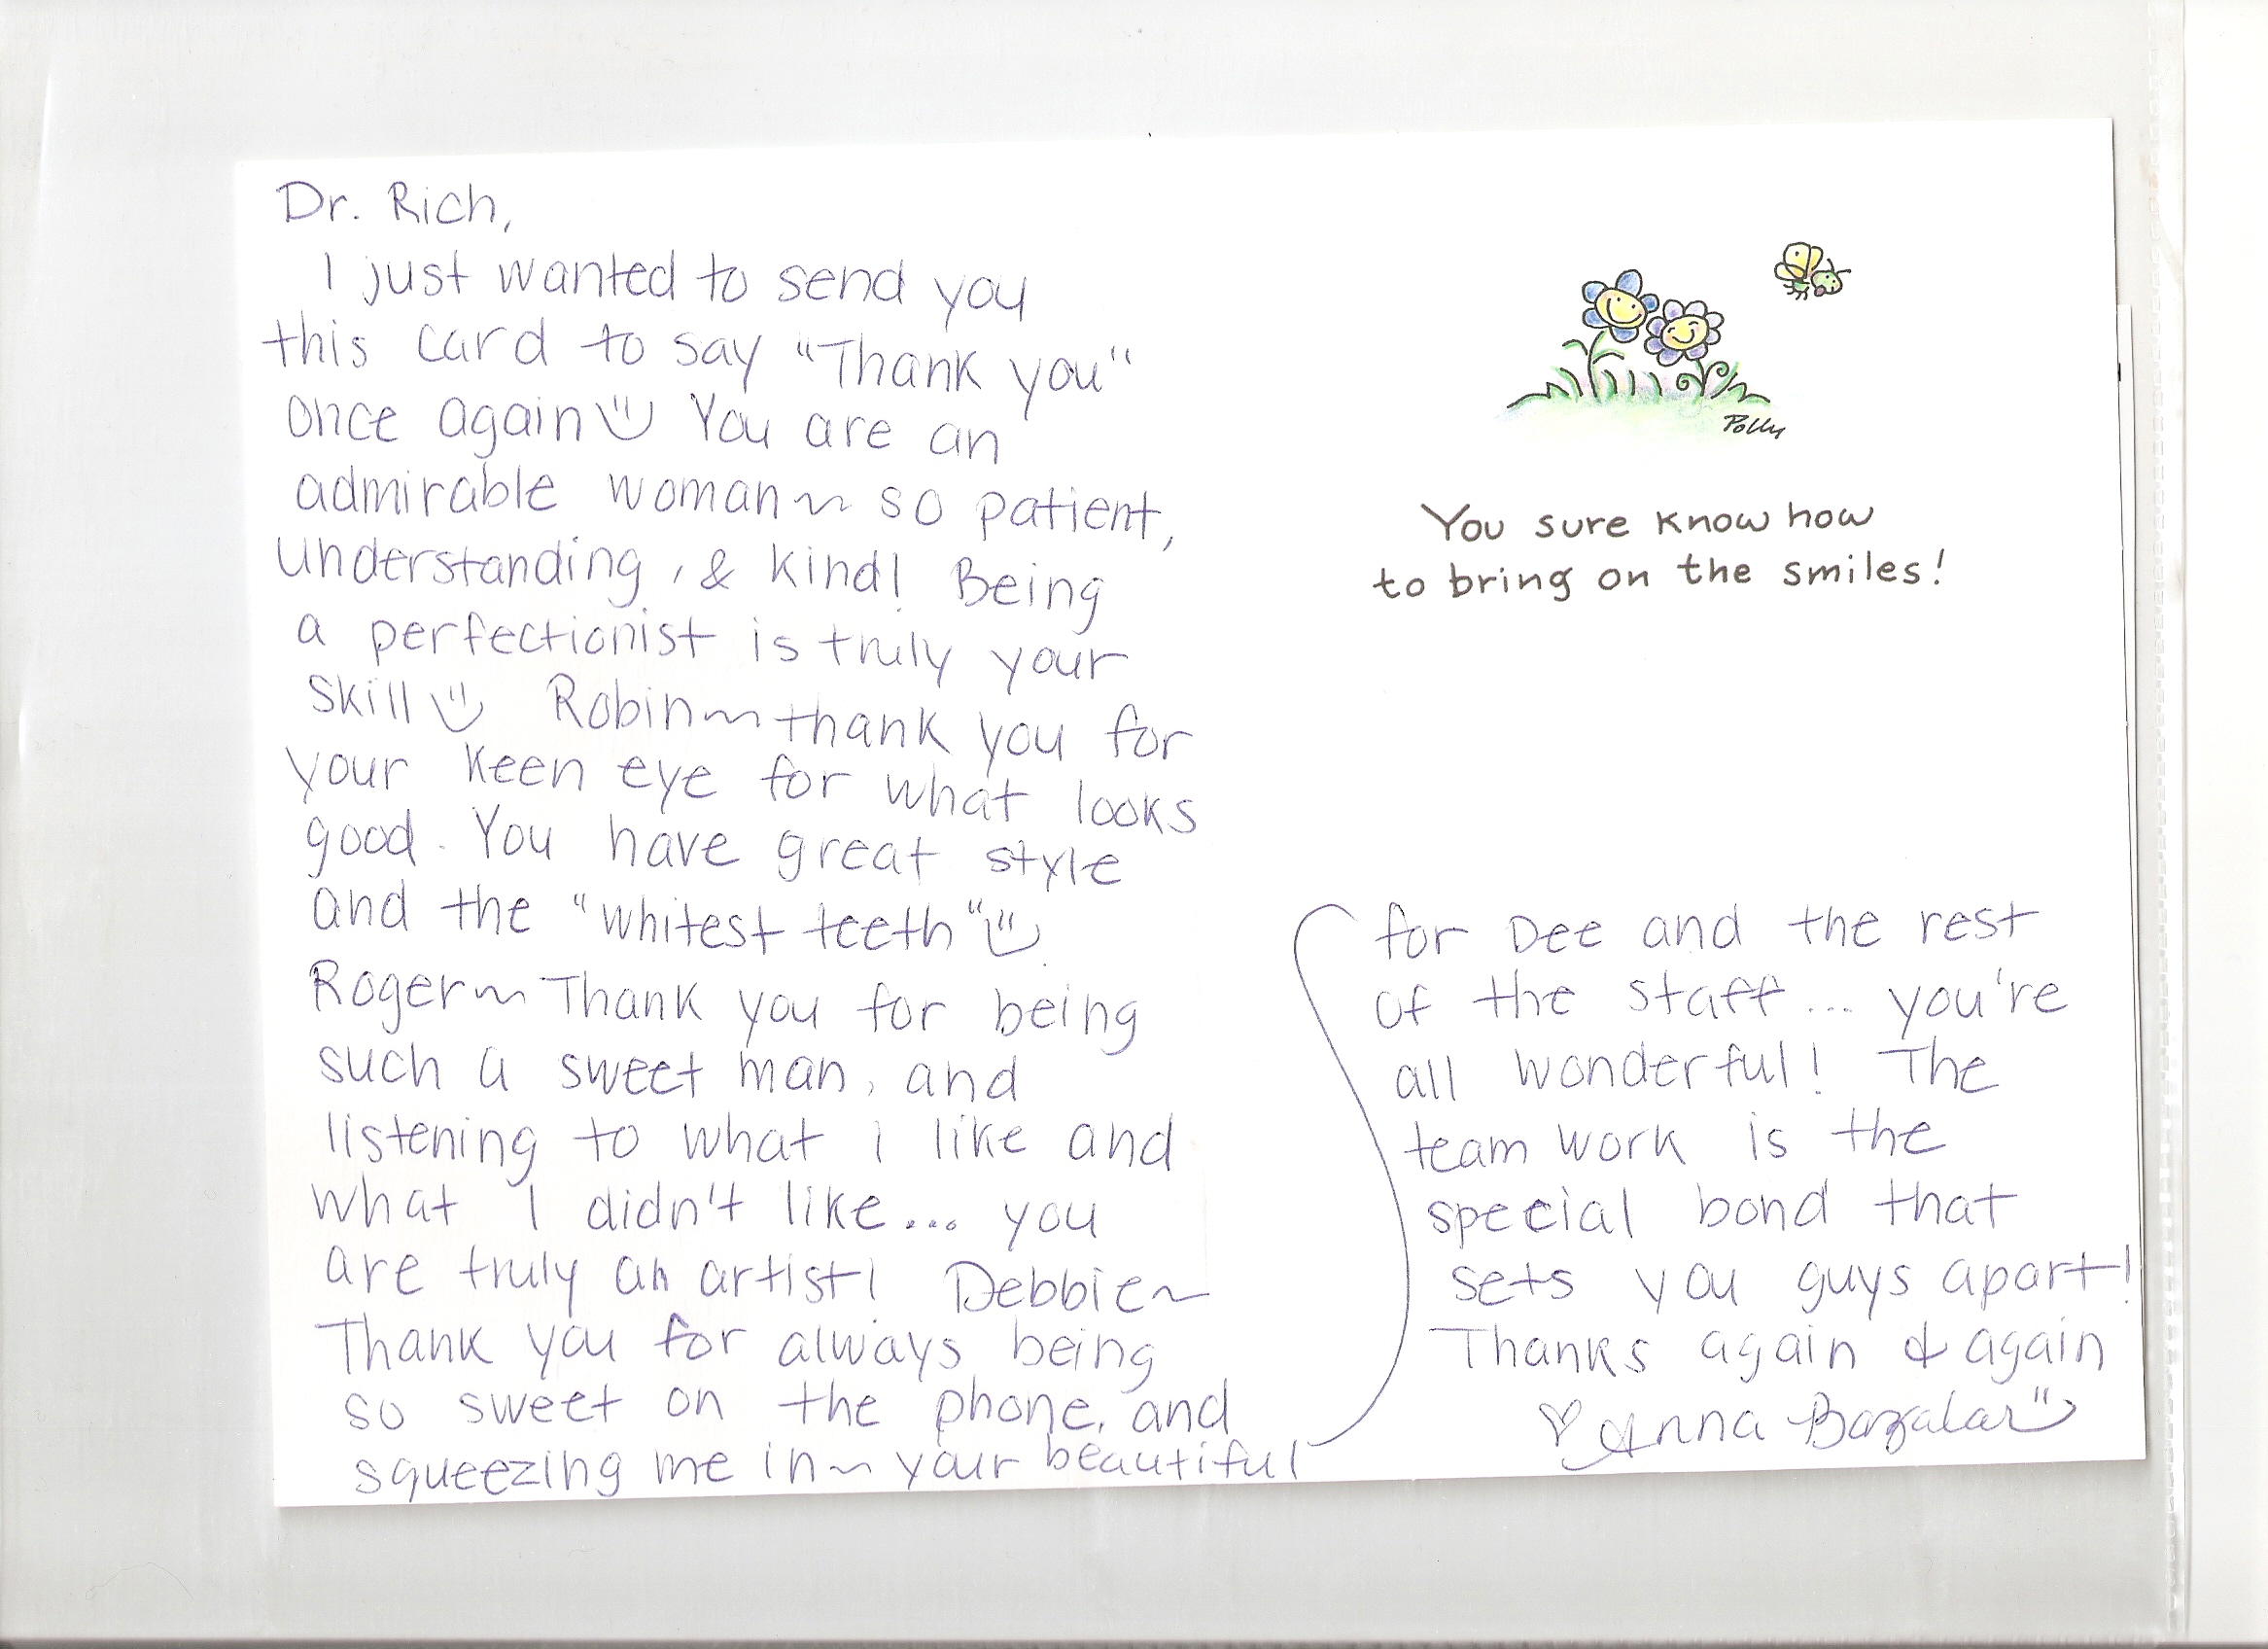 Dr. Rich,
I just wanted to send you
this card to say "Thank you"
once again You are an
admirable woman~ so patient,
understanding, & kind! Being
a perfectionist is truly your
skill Robin~ thank you for
your keen eye for what looks
good. You have great style
and the "whitest teeth"
Roger~ Thank you for being
such a sweet man, and
listening to what I like and
what I didn't like... you
are truly an artist! Debbie~
Thank you for always being
so sweet on the phone, and
squeezing me in~ your beautiful
Polly
You sure know how
to bring on the smiles!
for Dee and the rest
of the staff... you're
all wonderful! The
team work is the
special bond that
sets you guys apart!
Thanks again & again
♡ Anna Bazalar